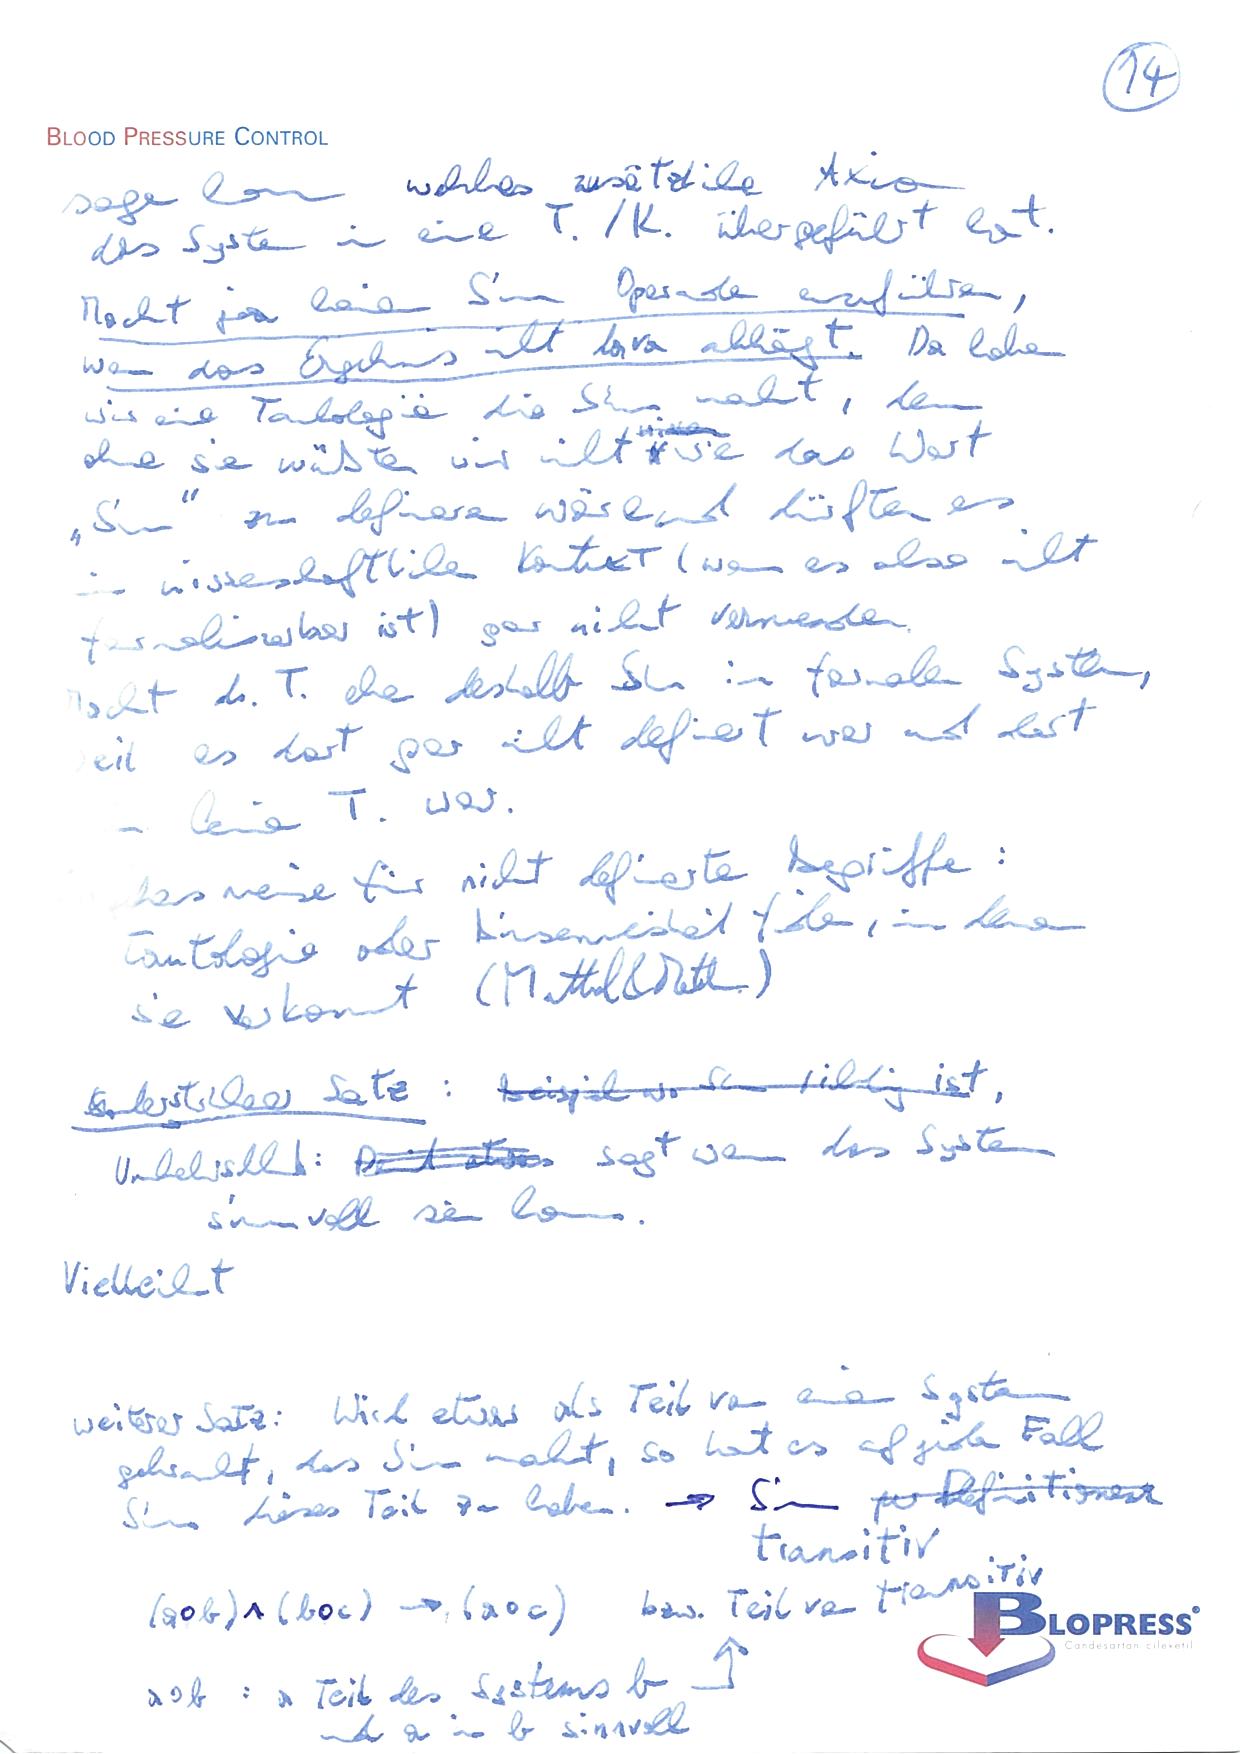 14
BLOOD PRESSURE CONTROL
sage kann welches zusätzliche Axiom
das System in eine T. /K. übergeführt hat.
Macht ja keinen Sinn Operande anzuführen,
wenn das Ergebnis nicht davon abhängt. Da haben
wir eine Tautologie die Sinn macht, denn
ohne sie wüßten wir nicht wie das Wort
„Sinn" zu definieren wäre und dürften es
im wissenschaftlichen Kontext (wenn es also nicht
formalisierbar ist) gar nicht verwenden.
Macht d. T. eben deshalb Sinn im formalen System,
weil es dort gar nicht definiert war und dort
keine T. war.
für nicht definierte Begriffe :
Tautologie oder Binsenweisheit finden, in denen
sie vorkommt
Satz : beispiel wo Sinn richtig ist,
Umkehrschluß: sagt wann das System
sinnvoll sein kann.
Vielleicht
weiterer Satz: Wird etwas als Teil von einem System
gebraucht, das Sinn macht, so hat es auf jeden Fall
Sinn diesen Teil zu haben. → Sinn per Definitionem
transitiv
(a∘b) ∧ (b∘c) → (a∘c) bzw. Teil von transitiv
BLOPRESS®
Candesartan cilexetil
a∘b : a Teil des Systems b
und a in b sinnvoll